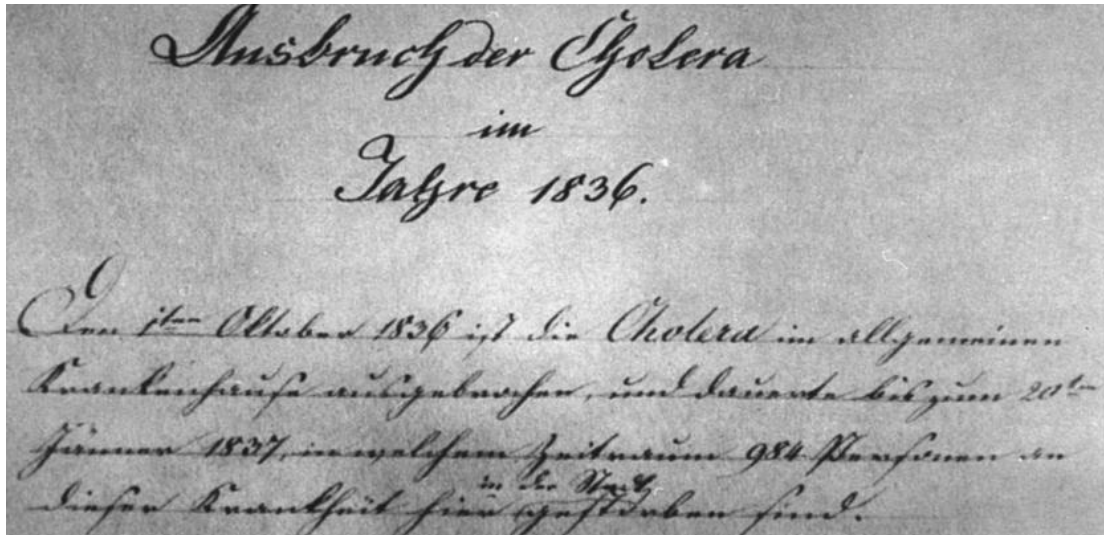 Ausbruch der Cholera
im
Jahre 1836.
Den 1ten Oktober 1836 ist die Cholera im allgemeinen
Krankenhause ausgebrochen, und dauerte bis zum 20ten
Jänner 1837, in welchem Zeitraum 984 Personen an
in der Stadt
dieser Krankheit hier gestorben sind.